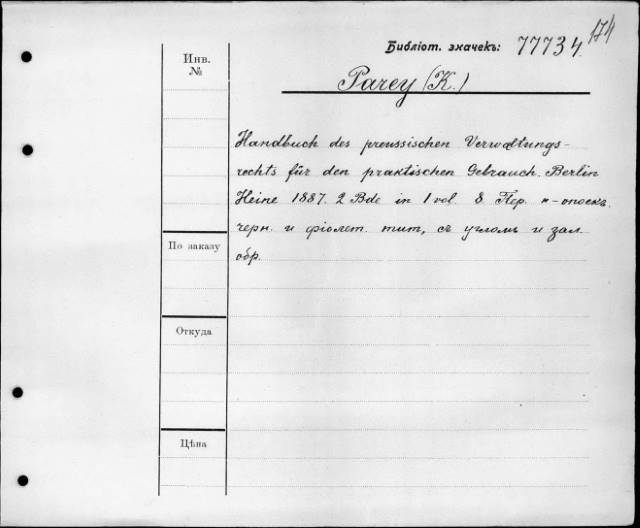 174
Библіот. значекъ: 77734
Инв.
№
Parey (K.)
Handbuch des preussischen Verwaltungs-
rechts für den praktischen Gebrauch. Berlin
Heine 1887. 2 Bde in 1 vol. 8. Пер. п-опоекъ
черн. и фіолет. тит, съ углом и зал.
обр.
По заказу
Откуда
Цѣна